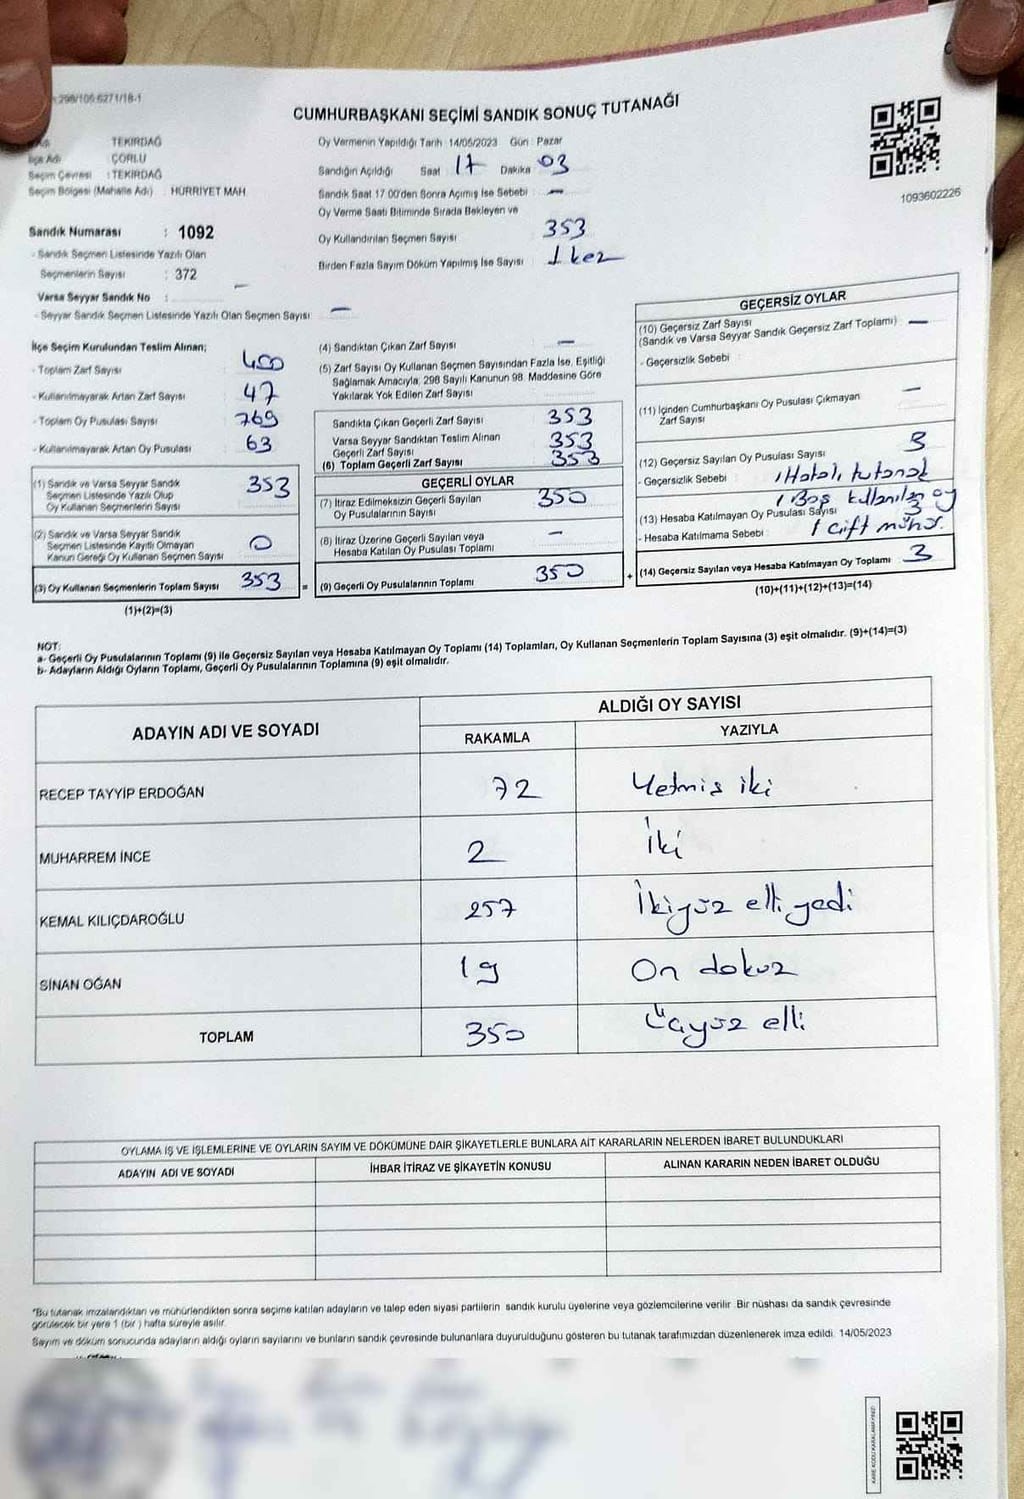 298/106:6271/18-1
CUMHURBAŞKANI SEÇİMİ SANDIK SONUÇ TUTANAĞI
TEKİRDAĞ
İlçe Adı ÇORLU
Seçim Çevresi : TEKİRDAĞ
Seçim Bölgesi (Mahalle Adı) : HÜRRİYET MAH.
Sandık Numarası : 1092
- Sandık Seçmen Listesinde Yazılı Olan
Seçmenlerin Sayısı : 372
Varsa Seyyar Sandık No : —
- Seyyar Sandık Seçmen Listesinde Yazılı Olan Seçmen Sayısı: —
Oy Vermenin Yapıldığı Tarih 14/05/2023 Gün : Pazar
Sandığın Açıldığı Saat 17 Dakika 03
Sandık Saat 17.00'den Sonra Açılmış İse Sebebi : —
Oy Verme Saati Bitiminde Sırada Bekleyen ve
Oy Kullandırılan Seçmen Sayısı 353
Birden Fazla Sayım Döküm Yapılmış İse Sayısı : 1 kez
1093602226
İlçe Seçim Kurulundan Teslim Alınan;
- Toplam Zarf Sayısı 400
- Kullanılmayarak Artan Zarf Sayısı 47
- Toplam Oy Pusulası Sayısı 769
- Kullanılmayarak Artan Oy Pusulası 63
(1) Sandık ve Varsa Seyyar Sandık
Seçmen Listesinde Yazılı Olup 353
Oy Kullanan Seçmenlerin Sayısı
(2) Sandık ve Varsa Seyyar Sandık
Seçmen Listesinde Kayıtlı Olmayan 0
Kanun Gereği Oy Kullanan Seçmen Sayısı
(3) Oy Kullanan Seçmenlerin Toplam Sayısı 353
(1)+(2)=(3)
(4) Sandıktan Çıkan Zarf Sayısı : —
(5) Zarf Sayısı Oy Kullanan Seçmen Sayısından Fazla İse, Eşitliği
Sağlamak Amacıyla, 298 Sayılı Kanunun 98. Maddesine Göre
Yakılarak Yok Edilen Zarf Sayısı
Sandıkta Çıkan Geçerli Zarf Sayısı 353
Varsa Seyyar Sandıktan Teslim Alınan
Geçerli Zarf Sayısı 353
(6) Toplam Geçerli Zarf Sayısı 353
GEÇERLİ OYLAR
(7) İtiraz Edilmeksizin Geçerli Sayılan 350
Oy Pusulalarının Sayısı
(8) İtiraz Üzerine Geçerli Sayılan veya —
Hesaba Katılan Oy Pusulası Toplamı
= (9) Geçerli Oy Pusulalarının Toplamı 350
GEÇERSİZ OYLAR
(10) Geçersiz Zarf Sayısı
(Sandık ve Varsa Seyyar Sandık Geçersiz Zarf Toplamı) —
- Geçersizlik Sebebi :
(11) İçinden Cumhurbaşkanı Oy Pusulası Çıkmayan —
Zarf Sayısı
(12) Geçersiz Sayılan Oy Pusulası Sayısı 3
- Geçersizlik Sebebi : 1 Hatalı tutanak
1 Boş kullanılan oy
(13) Hesaba Katılmayan Oy Pusulası Sayısı 3
- Hesaba Katılmama Sebebi : 1 Çift mühür.
+ (14) Geçersiz Sayılan veya Hesaba Katılmayan Oy Toplamı 3
(10)+(11)+(12)+(13)=(14)
NOT:
a- Geçerli Oy Pusulalarının Toplamı (9) ile Geçersiz Sayılan veya Hesaba Katılmayan Oy Toplamı (14) Toplamları, Oy Kullanan Seçmenlerin Toplam Sayısına (3) eşit olmalıdır. (9)+(14)=(3)
b- Adayların Aldığı Oyların Toplamı, Geçerli Oy Pusulalarının Toplamına (9) eşit olmalıdır.
ADAYIN ADI VE SOYADI ALDIĞI OY SAYISI
RAKAMLA YAZIYLA
RECEP TAYYİP ERDOĞAN 72 Yetmis iki
MUHARREM İNCE 2 İki
KEMAL KILIÇDAROĞLU 257 İkiyüz elli yedi
SİNAN OĞAN 19 On dokuz
TOPLAM 350 Üçyüz elli
OYLAMA İŞ VE İŞLEMLERİNE VE OYLARIN SAYIM VE DÖKÜMÜNE DAİR ŞİKAYETLERLE BUNLARA AİT KARARLARIN NELERDEN İBARET BULUNDUKLARI
ADAYIN ADI VE SOYADI İHBAR İTİRAZ VE ŞİKAYETİN KONUSU ALINAN KARARIN NEDEN İBARET OLDUĞU
*Bu tutanak imzalandıktan ve mühürlendikten sonra seçime katılan adayların ve talep eden siyasi partilerin sandık kurulu üyelerine veya gözlemcilerine verilir. Bir nüshası da sandık çevresinde
görülecek bir yere 1 (bir ) hafta süreyle asılır.
Sayım ve döküm sonucunda adayların aldığı oyların sayılarını ve bunların sandık çevresinde bulunanlara duyurulduğunu gösteren bu tutanak tarafımızdan düzenlenerek imza edildi. 14/05/2023
KARE KODU KARALAMAYINIZ!